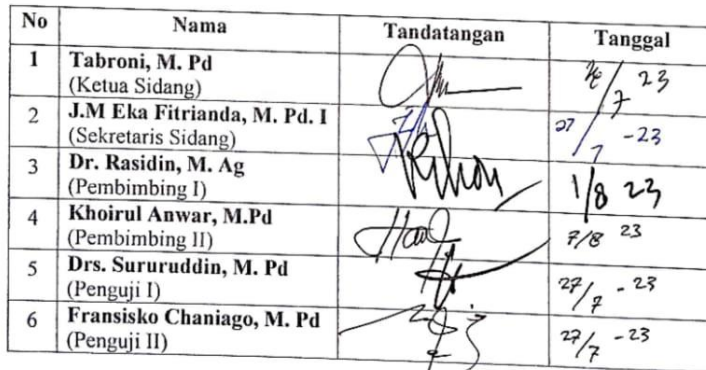 No Nama Tandatangan Tanggal
1 Tabroni, M. Pd
(Ketua Sidang) 7 23
2 J.M Eka Fitrianda, M. Pd. I
(Sekretaris Sidang) 27/7 -23
3 Dr. Rasidin, M. Ag
(Pembimbing I) 1/8 23
4 Khoirul Anwar, M.Pd
(Pembimbing II) 7/8 23
5 Drs. Sururuddin, M. Pd
(Penguji I) 27/7 - 23
6 Fransisko Chaniago, M. Pd
(Penguji II) 27/7 - 23